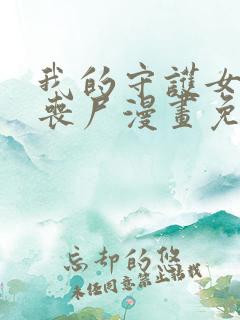 我的守護女
喪尸漫畫免
忘却的悠
未经同意禁止转载